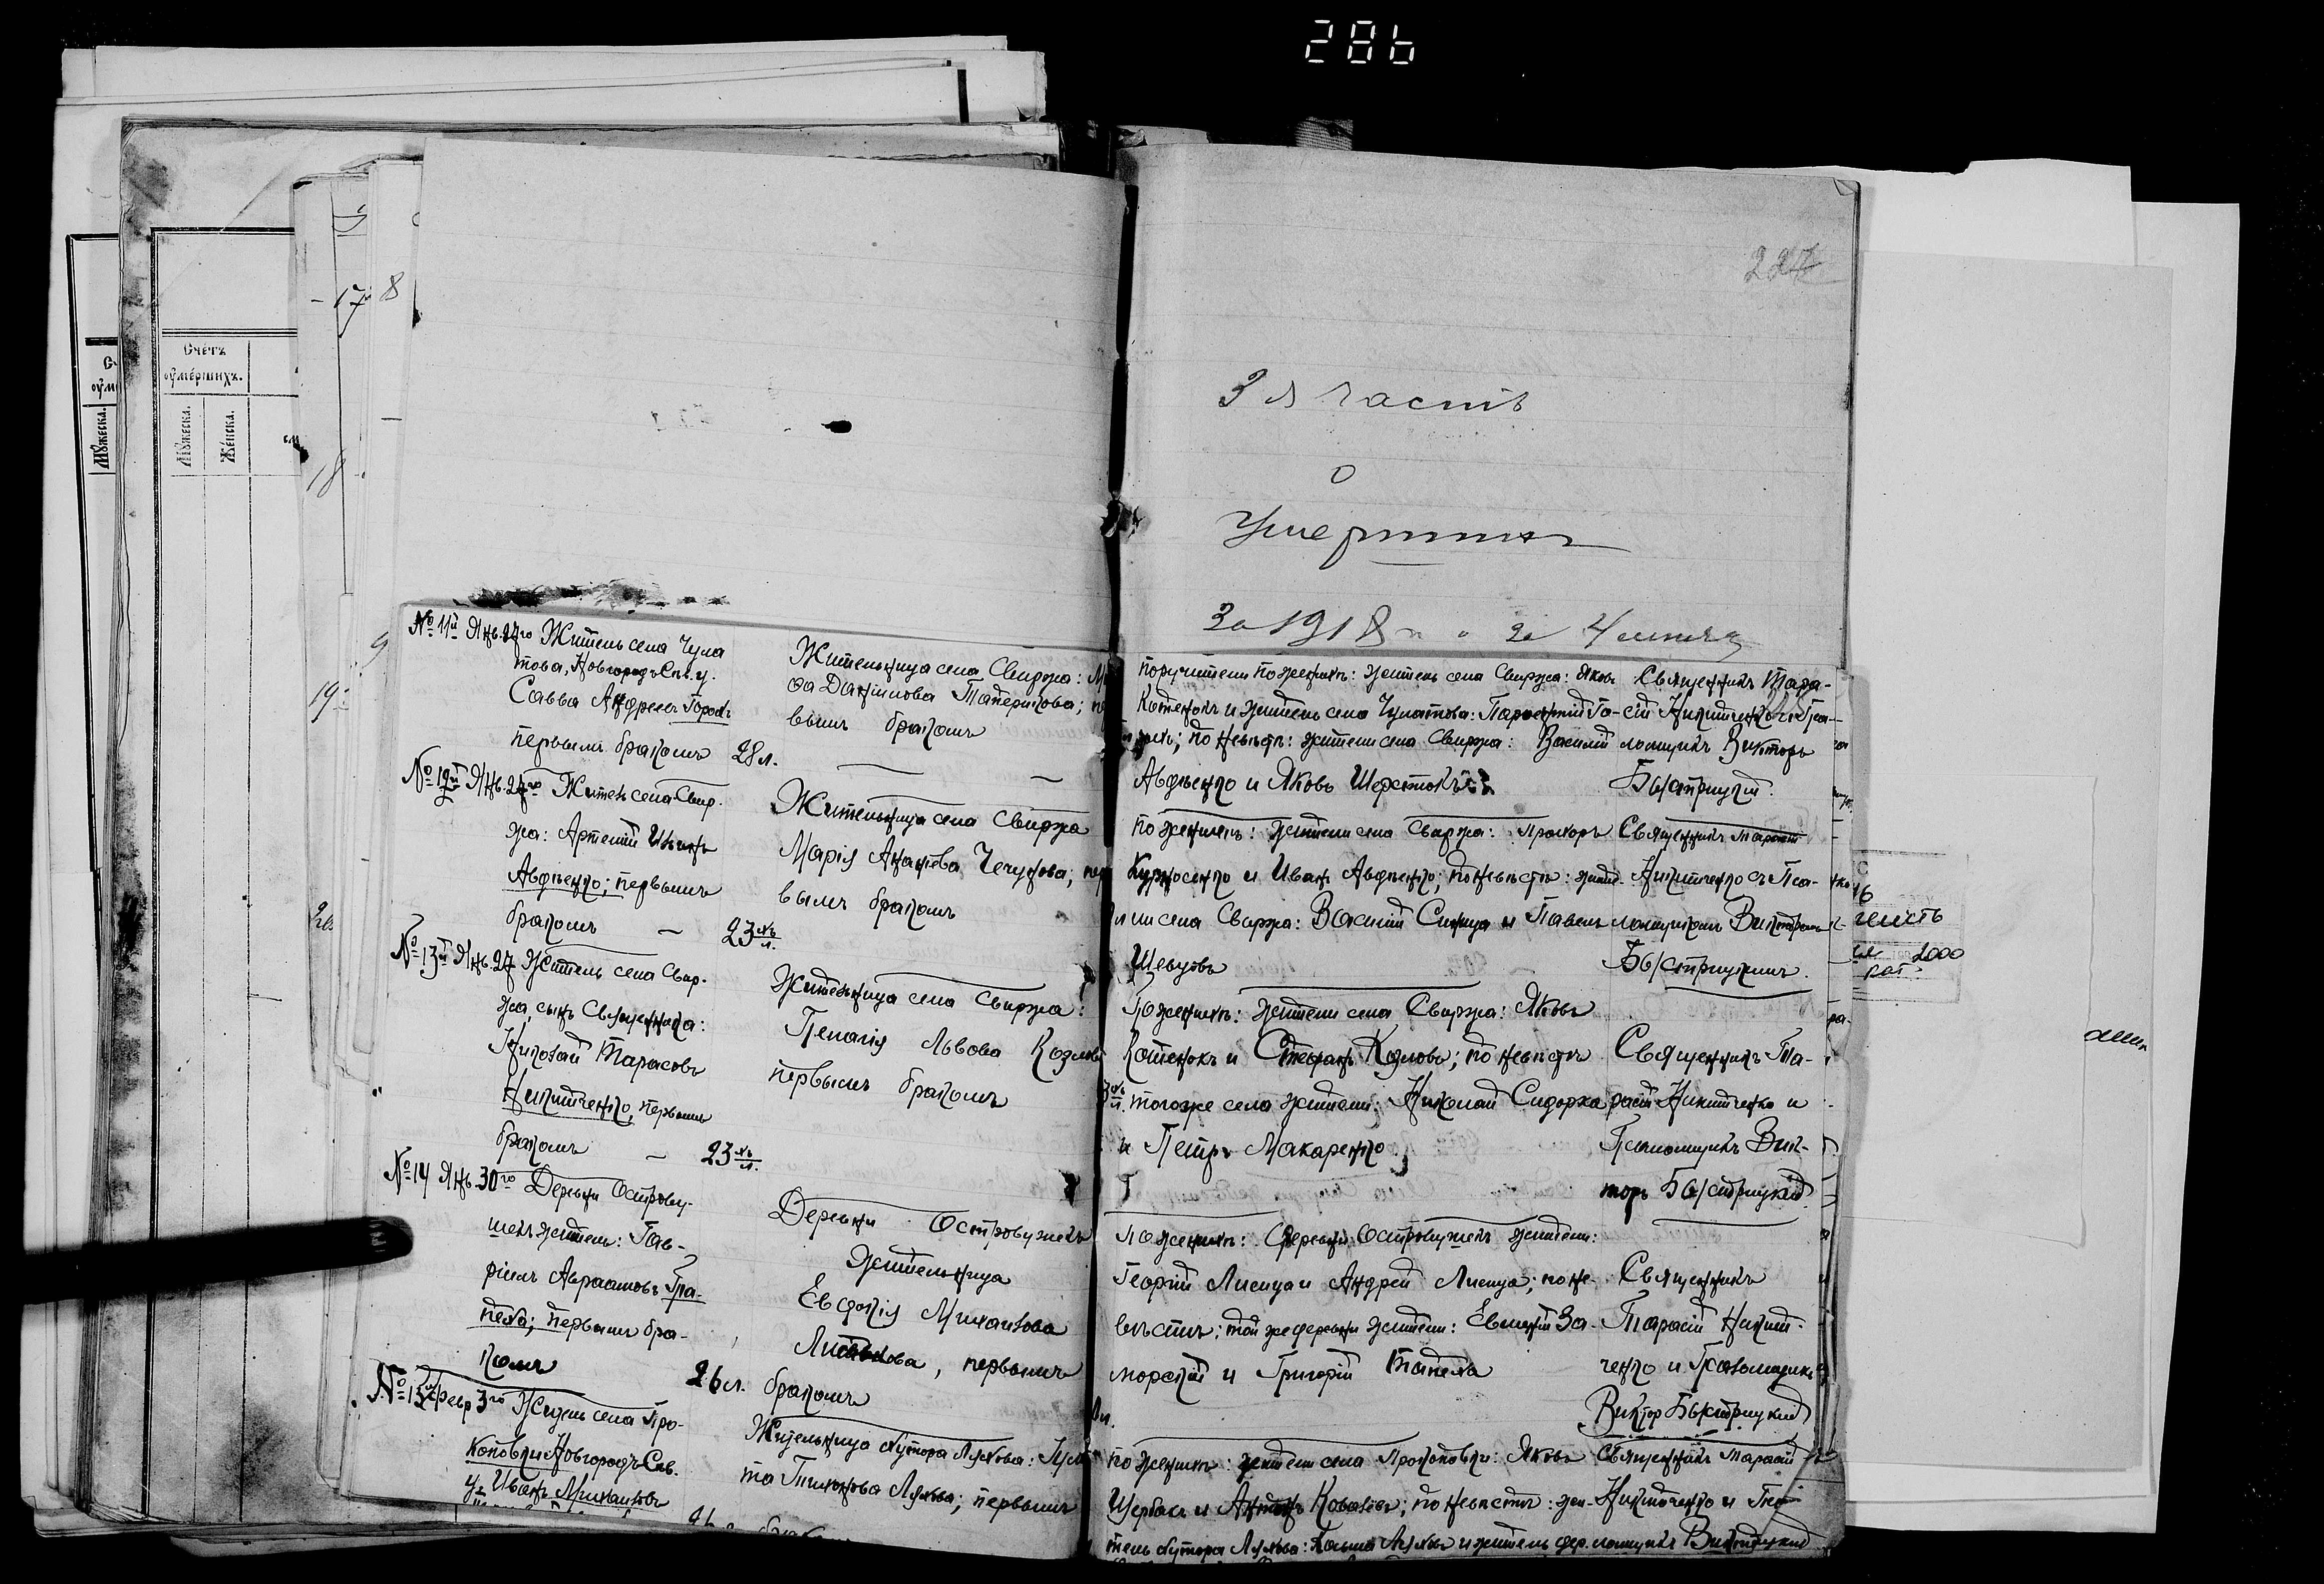 286
227
3 я часть
о
Умерших
За 1918 г. за 4 месяца
Счетъ
оумершихъ.
Мужеска.
Женска.
17
8
18
19
№ 11й Янв. 27го Житель села Чула
това, Новгородъ Сѣв. у.
Савва Андреевъ Горохъ
первымъ бракомъ 28 л.
Жительница села Свиржа:
Данiилова Татерикова;
вымъ бракомъ
поручители по женихѣ: житель села Свиржа: Яковъ
Котенокъ и житель села Чулатова: Парфентiй Го-
рохъ; по невѣстѣ: жители села Свиржа: Василiй
Авдѣенко и Яковъ Шерстюкъ
Священникъ Тара-
сiй Никитченко и Пса-
ломщикъ Викторъ
Быстрицкiй.
№ 12й Янв. 27го Житель села Свир-
жа: Артемiй
Авдѣенко; первымъ
бракомъ — 23 л.
Жительница села Свиржа
Марiя Ананьева Чечукова; пер
вымъ бракомъ
по женихѣ: жители села Свиржа: Прохоръ
Курносенко и Иванъ Авдѣенко; по невѣстѣ: жите-
ли села Свиржа: Василiй Синица и Павелъ
Шевцовъ
Священникъ Тарасiй
Никитченко съ Пса-
ломщикомъ Викторомъ
Быстрицкимъ.
№ 13й Янв. 27 Житель села Свир-
жа, сынъ Священника:
Николай Тарасовъ
Никитченко, первымъ
бракомъ — 23 л.
Жительница села Свиржа:
Пелагiя Львова Козлова
первымъ бракомъ
По женихѣ: жители села Свиржа: Яковъ
Котенокъ и Стефанъ Козловъ; по невѣстѣ
того же села жители: Николай Сидорка
и Петръ Макаренко
Священникъ Та-
расiй Никитченко и
Псаломщикъ Вик-
торъ Быстрицкiй
№ 14 Янв. 30го Деревни Острову-
шекъ житель: Гав-
рiилъ Авраамовъ
первымъ бра-
комъ 26 л.
Деревни Островушекъ
жительница
Евдокiя Михайлова
первымъ
бракомъ
По женихѣ: Деревни Островушекъ жители:
Георгiй Лисица и Андрей Лисица; по не-
вѣстѣ: той же деревни жители: Евменiй За-
морскiй и Григорiй
Священникъ
Тарасiй Никит-
ченко и Псаломщикъ
Викторъ Быстрицкiй
№ 15й Февр. 3го Житель села Про-
коповки Новгородъ Сѣв.
у. Иванъ Михайловъ
Жительница хутора Ляхова:
Тихонова Ляхова; первымъ
по женихѣ: жители села Прокоповки: Яковъ
Щербакъ и Антонъ Ковалевъ; по невѣстѣ: жи-
тель хутора Ляхова: Косьма Ляховъ и житель дер.
Священникъ Тарасiй
Никитченко и Пса-
ломщикъ
2000